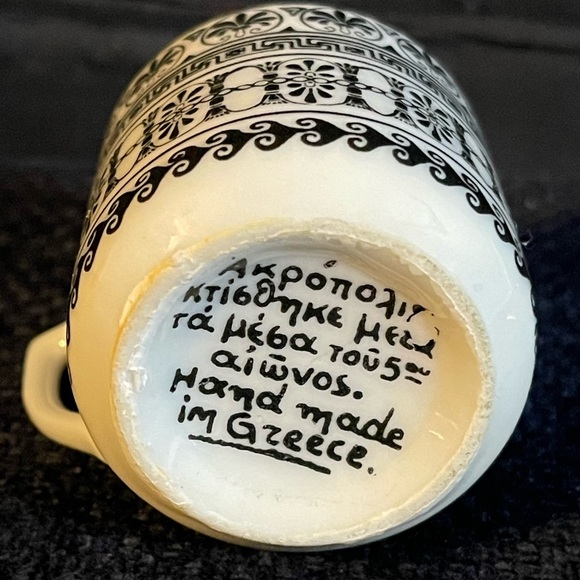 Ἀκρόπολις
κτίσθηκε μετά
τά μέσα τοῦ 5ου
αἰῶνος.
Hand made
in Greece.